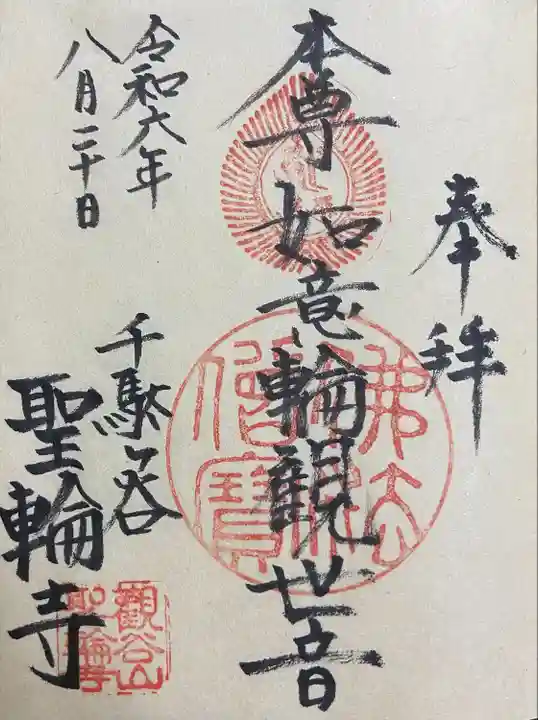 奉拝
本尊如意輪観世音
令和六年
八月二十日
千駄ヶ谷
聖輪寺
佛法僧寳
觀谷山
聖輪寺